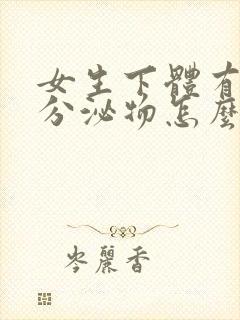 女生下體有
分泌物怎麼
岑麗香